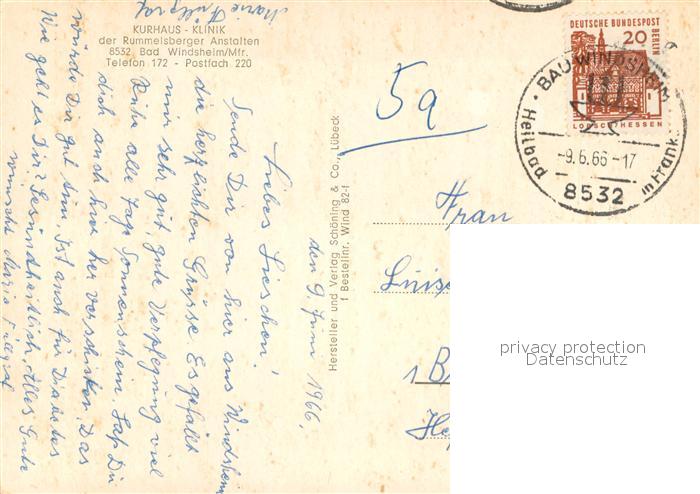 KURHAUS - KLINIK
der Rummelsberger Anstalten
8532 Bad Windsheim/Mfr.
Telefon 172 - Postfach 220
den 9. Juni 1966.
Liebes Lieschen!
Sende Dir von hier aus Windsheim
die herzlichsten Grüsse. Es gefällt
mir sehr gut, gute Verpflegung viel
Ruhe alle Tage Sonnenschein. Laß Du
dich auch hier her verschicken. Das
würde Dir gut tun. Ist auch für Diabetes
Wie geht es Dir? Gesundheitlich, Alles Gute
wünscht Maria Füllgraf
Hersteller und Verlag Schöning & Co., Lübeck
f Bestellnr. Wind 82-f
5a
DEUTSCHE BUNDESPOST
BERLIN
20
LORSCH/HESSEN
BAD WINDSHEIM
Heilbad in Frank.
-9.6.66-17
8532
Frau
1 B
privacy protection
Datenschutz